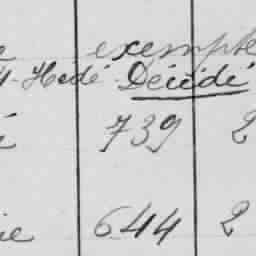 e exempte
y-Hédé Décédé
i 739 2
ie 644 2